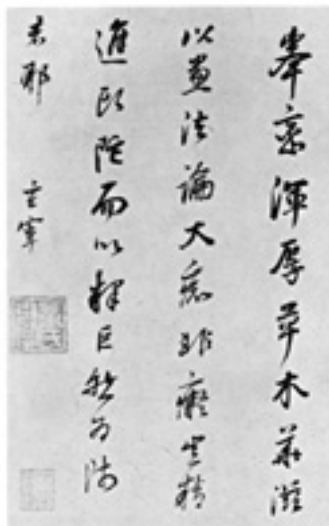 峯巒渾厚草木華滋
以畫法論大癡非癡豈精
進頭陀而以釋巨然為師
者耶 玄宰